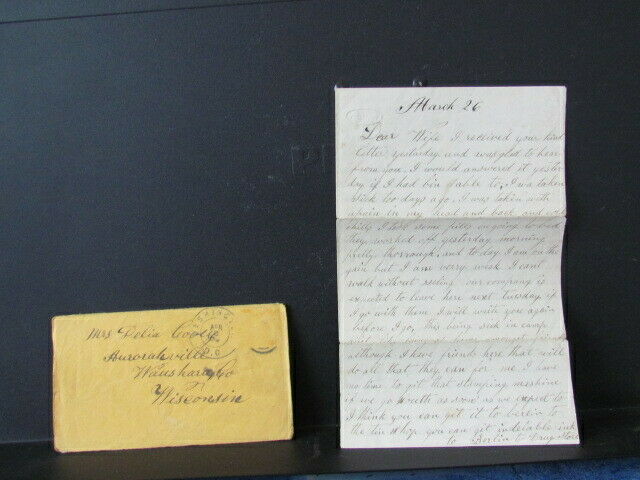 Mrs Delia Cooley
Aurorahville
Waushara Co
Wisconsin
March 26
Dear Wife I received your kind
letter yesterday and was glad to hear
from you. I would answered it yester
day if I had bin able to. I was taken
sick too days ago. I was taken with
a pain in my head and back and
chills I took some pills on going to bed
they worked off yesterday morning
pretty thorrough. and to day I am on the
gain but I am verry weak I cant
walk without reeling our company is
expected to leave here next tuesday if
I go with them I will write you again
before I go, this being sick in camp
although I have friends here that will
do all that they can for me I have
no time to git that stamping mashine
if we go south as soon as we expect to
I think you can get it to berlin to
the tin shop you can git indelable ink
to Berlin to Drug Store